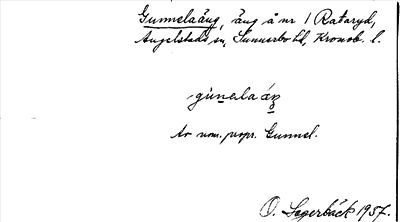 Gunnelaäng, äng å nr 1 Rataryd,
Angelstads sn, Sunnerbo hd, Kronob. l.
gùnelaáŋ
Av nom. propr. Gunnel.
O. Sagerbäck 1937.